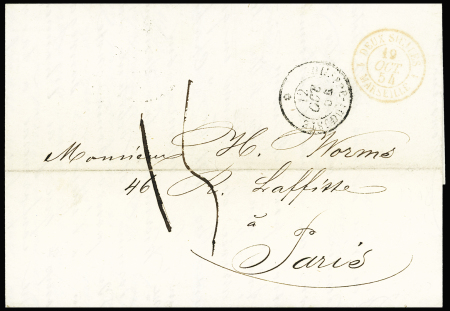 DEUX SICILES
19
OCT
54
MARSEILLE
12
OCT
54
15
Monsieur H. Worms
46 R. Laffitte
à
Paris